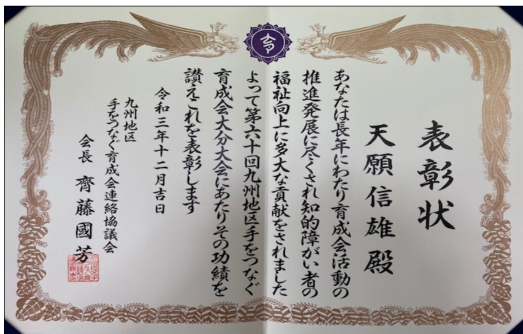 表彰状
天願信雄 殿
あなたは長年にわたり育成会活動の
推進発展に尽くされ知的障がい者の
福祉向上に多大な貢献をされました
よって第六十回九州地区手をつなぐ
育成会大分大会にあたりその功績を
讃えこれを表彰します
令和三年十二月吉日
九州地区
手をつなぐ育成会連絡協議会
会長 齊藤國芳